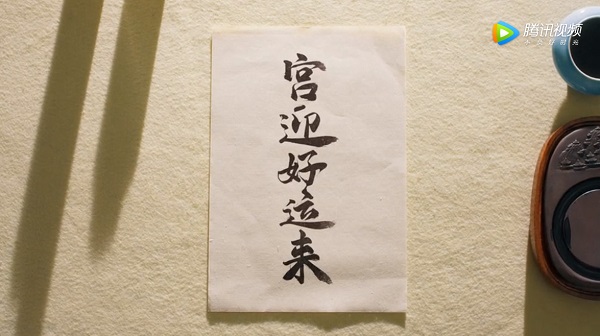 宫迎好运来
腾讯视频